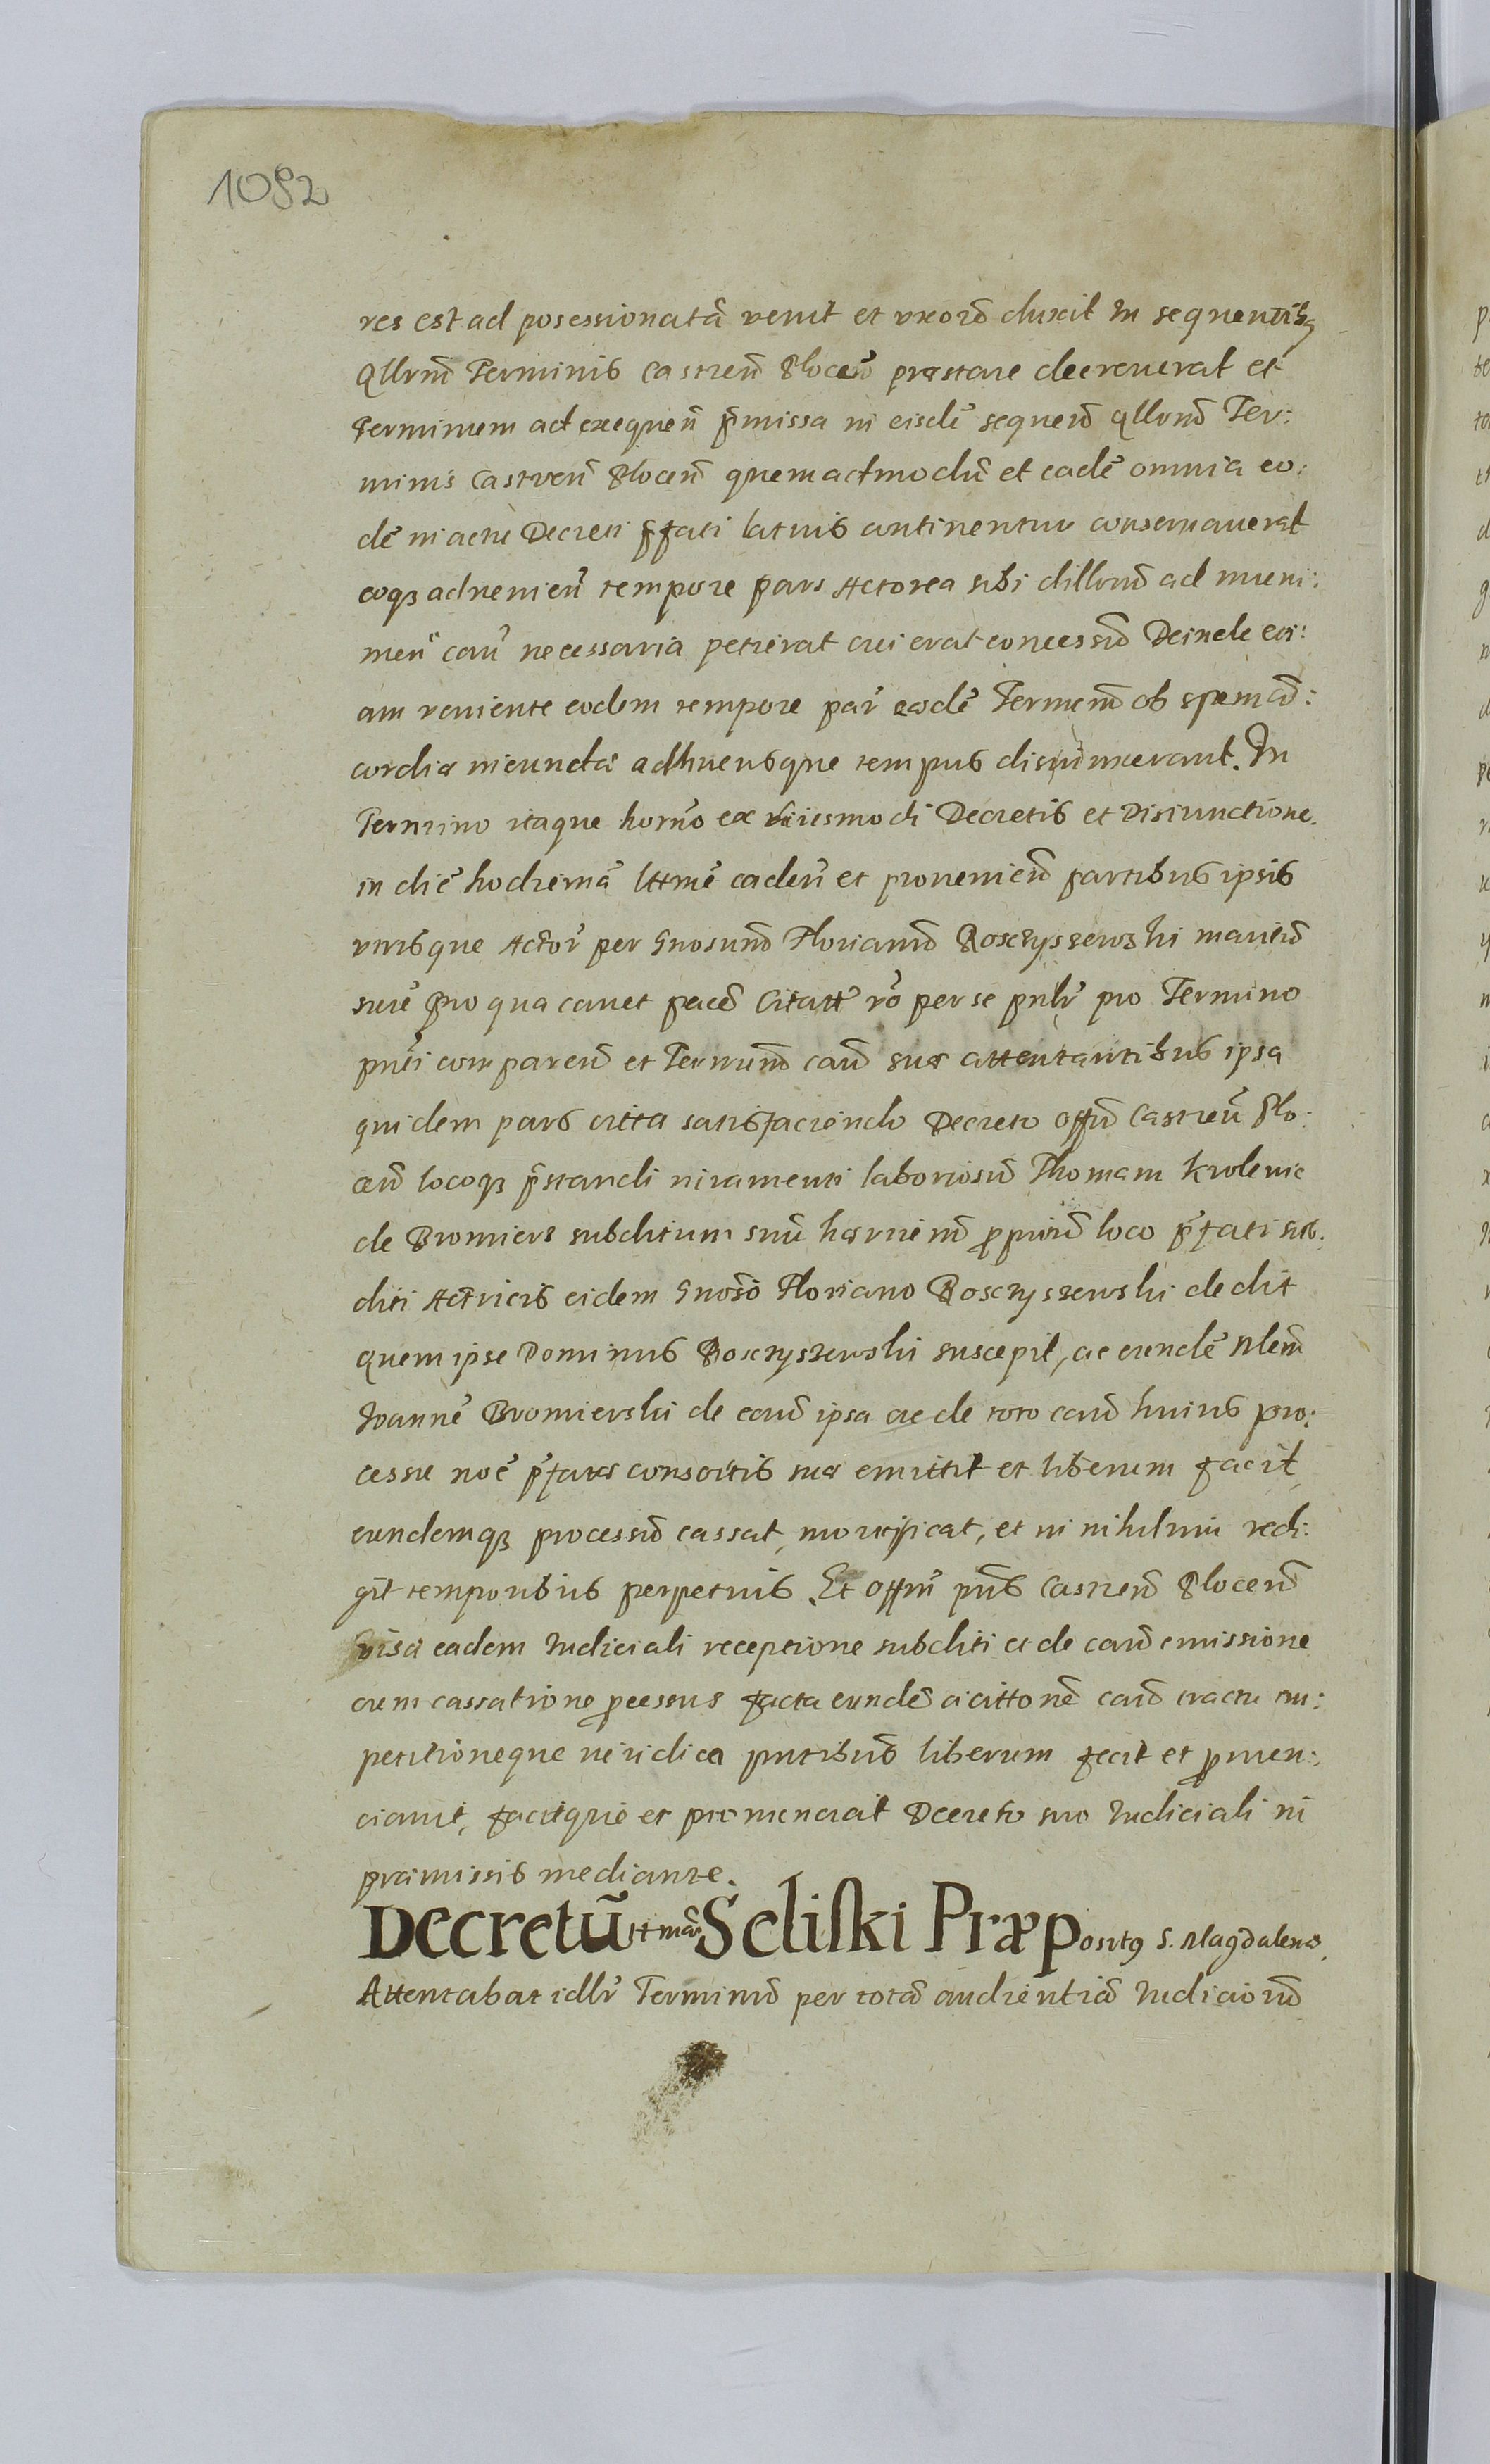 1092
res est ad posessionatã venit et vxorẽ duxit In sequentibꝫ
Qllrũ Terminis Castreñ Ploceñ præstare decreuerat et
Terminum ad exequeñ p̃missa in eisdẽ sequeñ qllrũ Ter:
minis Castreñ Ploceñ quemadmodũ et eadẽ omnia eo:
dẽ in actu Decreti p̃fati latius continentur conseruauerat
eoqꝫ adnenieñ tempore pars Actorea sibi dillrũ ad muni:
meñ cauẽ necessaria petierat cui erat concessũ Deinde eti:
am veniente eodem tempore par̃ eosdẽ Terminũ ob spem cõ:
cordiæ ineundæ adhucusque tempus disiunxerant. In
Termino itaque horño ex huiusmodi Decretis et Disiunctione
in diẽ hodiernã lttmẽ cadeñ et prouenieñ partibus ipsis
vtrisque Actor̃ per Gnosum̃ Florianũ Roscyszewski maritũ
suũ pro qua cauet paceñ Citatt̃ v̾o per se pnlr̃ pro Termino
pnti compareñ et Terminũ cauẽ suæ attentantibus ipsa
quidem pars citta satisfaciendo Decreto offii Castreñ Plo:
ceñ locoqꝫ p̃standi iuramenti laboriosũ Thomam Krolewic
de Bromierz subditum suũ hæreditariũ p̱priũ loco p̃fati sub:
diti Actricis eidem Gnoso Floriano Roscyszewski dedit
quem ipse Dominus Roscyszewski suscepit, ac eundẽ Nlem̃
Joannẽ Bromierski de cauã ipsa ac de toto cauẽ huius pro:
cessu noẽ p̃fatæ consortis suæ emittit et liberum facit,
eundemqꝫ processũ cassat, mortificat, et in nihilum redi:
git temporibus perpetuis. Et offm̃ pñs Castreñ Ploceñ
visa eadem Iudiciali receptione subditi et de cauã emissione
cum cassatione p̱cessus facta eundẽ a cittonẽ cauẽ tractu im:
petitioneque iuridica pntibus liberum fecit et p̱nun:
ciauit, facitque et pronunciat Decreto suo Iudiciali in
præmissis mediante.
Decretũ ttmã Seliſki Præpositꝯ S. Magdalenæ
Attentabat idlr̃ Terminũ per totã audientiã Iudiciorũ